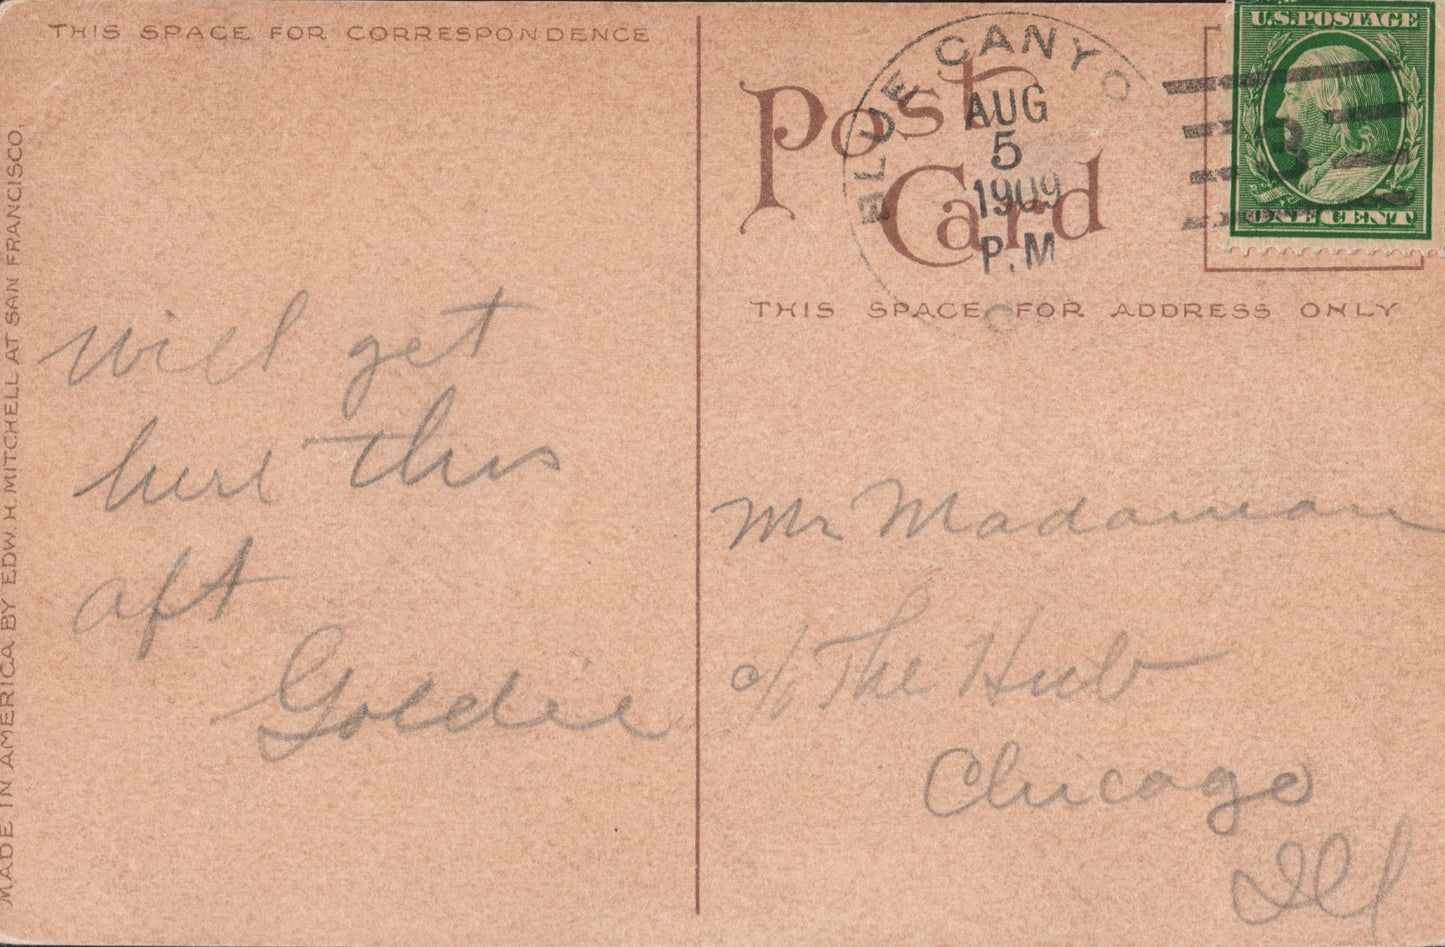 THIS SPACE FOR CORRESPONDENCE
MADE IN AMERICA BY EDW. H. MITCHELL AT SAN FRANCISCO,
will get
here this
aft
Goldie
Post
Card
BLUE CANYO
AUG
5
1909
P.M
U.S. POSTAGE
3
ONE CENT
THIS SPACE FOR ADDRESS ONLY
Mr
c/o The Hub
Chicago
Ill